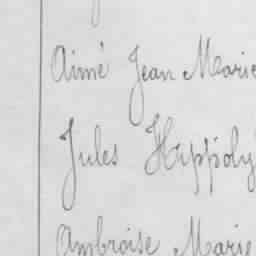 Aimé Jean Marie
Jules Hippoly
Ambroise Marie